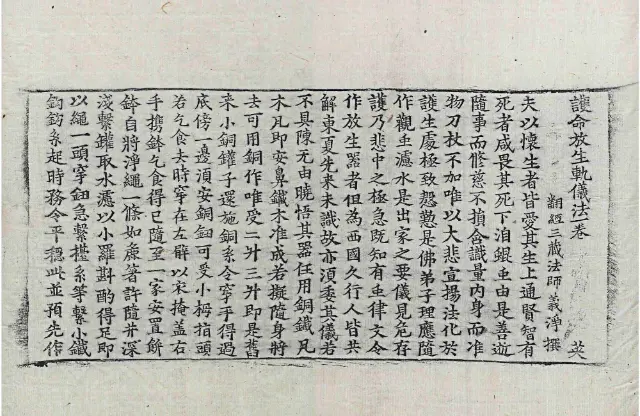 護命放生軌儀法卷 英
翻經三藏法師義淨 撰
夫以懷生者皆愛其生上通賢智有
死者咸畏其死下洎蜫䖝由是善逝
隨事而修慈不損含識量內身而准
物刀杖不加唯以大悲宣揚法化於
護生處極致慇懃是佛弟子理應隨
作觀䖝濾水是出家之要儀見危存
護乃悲中之極急既知有䖝律文令
作放生器者但為西國久行人皆共
解東夏先來未識故亦湏委其儀若
不具陳无由曉悟其器任用銅鐵凡
木凡即安鼻鐵木准成若擬隨身將
去可用銅作唯受二升三升即是舊
來小銅罐子還施銅系令穿手得過
底傍一邊湏安銅鈕可受小拇指頭
若乞食去時穿在左臂以衣掩盖右
手携鉢乞食得已隨至一家安置餅
鉢自將淨繩一條如麁著許隨井深
淺繫罐取水濾以小羅斟酌得足即
以繩一頭穿鈕急繫攬系等繫小鐵
鈎鈎系起時務令平穩此並預先作